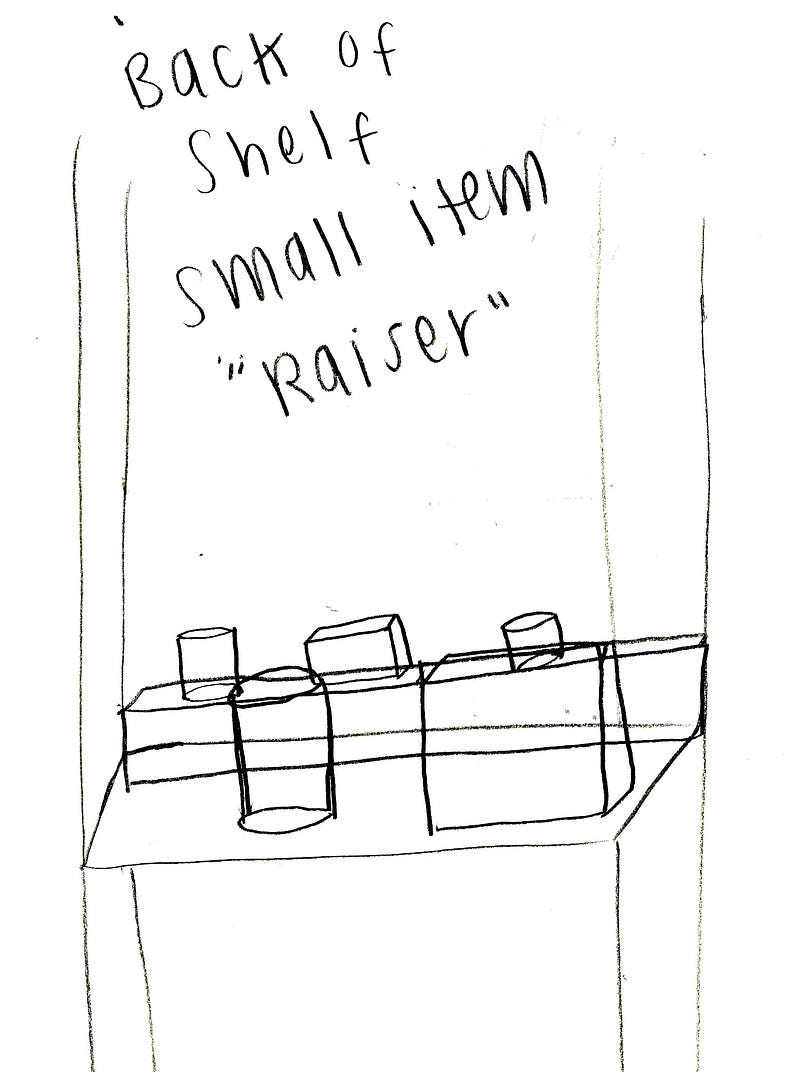 Back of
Shelf
small item
"Raiser"